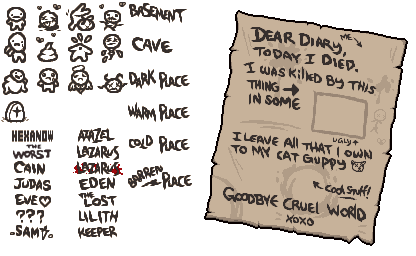 BASEMENT
CAVE
DARK PLACE
WARM PLACE
COLD PLACE
BARREN PLACE
HEXANOW
AZAZEL
THE WORST
LAZARUS
CAIN
LAZARUS
JUDAS
EDEN
EVE♡
THE LOST
???
LILITH
-SAM-
KEEPER
DEAR DIARY,
ME
TODAY I DIED.
I WAS KILLED BY THIS
THING →
IN SOME
UGLY
I LEAVE ALL THAT I OWN
TO MY CAT GUPPY
← COOL STUFF!
GOODBYE CRUEL WORLD
XOXO